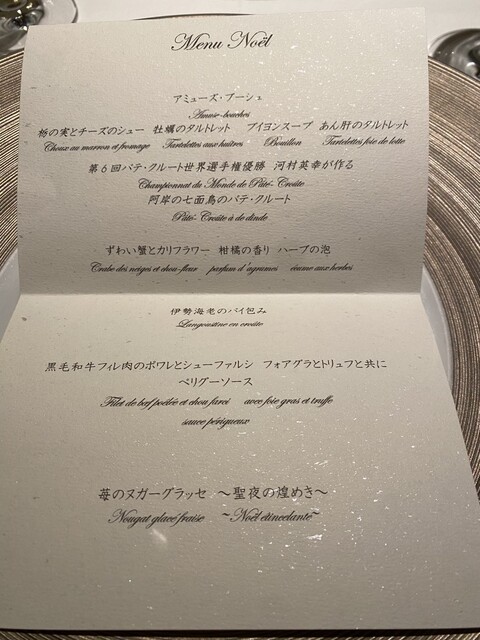 Menu Noël
アミューズ・ブーシュ
Amuse-bouches
栃の実とチーズのシュー 牡蠣のタルトレット ブイヨンスープ あん肝のタルトレット
Choux au marron et fromage Tartelettes aux huîtres Bouillon Tartelettes foie de lotte
第6回パテ・クルート世界選手権優勝 河村英幸が作る
Championnat du Monde de Pâté-Croûte
阿岸の七面鳥のパテ・クルート
Pâté-Croûte à de dinde
ずわい蟹とカリフラワー 柑橘の香り ハーブの泡
Crabe des neiges et chou-fleur parfum d'agrumes écume aux herbes
伊勢海老のパイ包み
Langoustine en croûte
黒毛和牛フィレ肉のポワレとシューファルシ フォアグラとトリュフと共に
ペリグーソース
Filet de bœf poêlée et chou farci avec foie gras et truffe
sauce périgueux
苺のヌガーグラッセ ～聖夜の煌めき～
Nougat glacé fraise ~Noël étincelante~